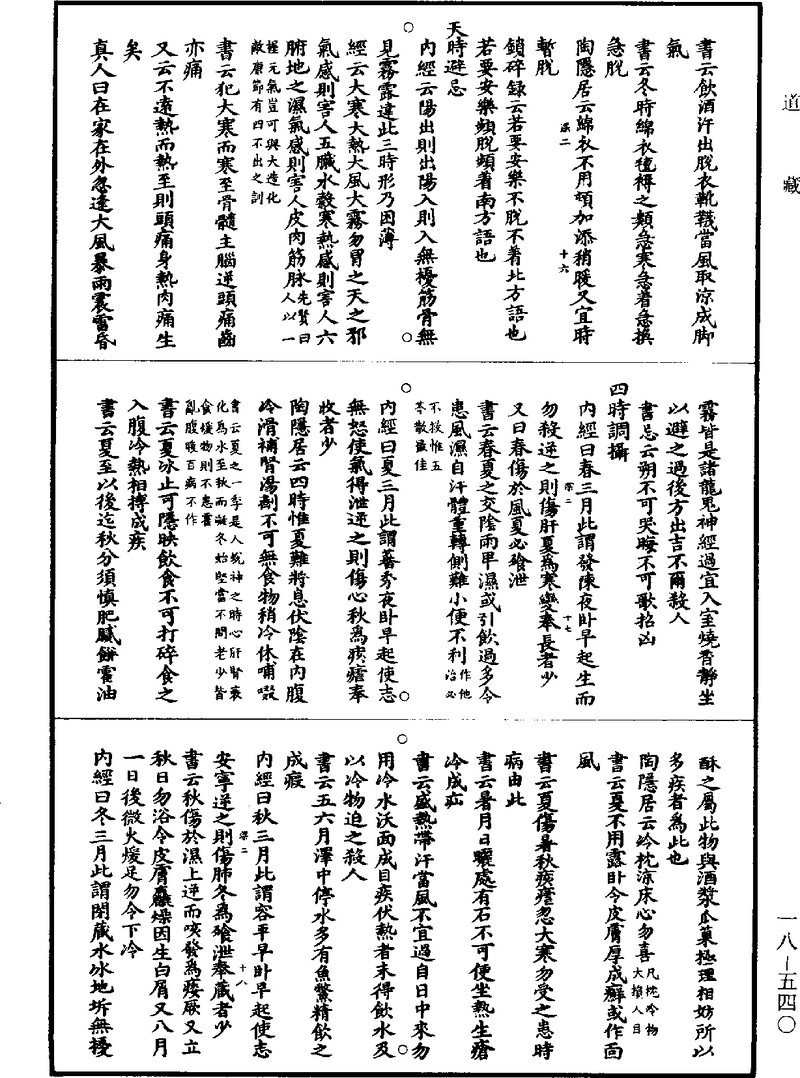 道藏
書云飲酒汗出脫衣靴韈當風取涼成脚
氣
書云冬時綿衣氊褥之類急寒急着急換
急脫
陶隱居云綿衣不用頓加添稍暖又宜時
暫脫
深二 十六
鎖碎録云若要安樂不脫不着北方語也
若要安樂頻脫頻着南方語也
天時避忌
內經云陽出則出陽入則入無擾筋骨無
見霧露違此三時形乃因薄
經云大寒大熱大風大霧勿冒之天之邪
氣感則害人五臟水穀寒熱感則害人六
腑地之濕氣感則害人皮肉筋脉先賢曰人以一
握元氣豈可與大造化
敵康節有四不出之訓
書云犯大寒而寒至骨髓主腦逆頭痛齒
亦痛
又云不遠熱而熱至則頭痛身熱肉痛生
矣
真人曰在家在外忽逢大風暴雨震雷昏
霧皆是諸龍鬼神經過宜入室燒香靜坐
以避之過後方出吉不爾殺人
書忌云朔不可哭晦不可歌招凶
四時調攝
內經曰春三月此謂發陳夜卧早起生而
深二 十七
勿殺逆之則傷肝夏爲寒變奉長者少
又曰春傷於風夏必飱泄
書云春夏之交陰雨卑濕或引飲過多令
患風濕自汗體重轉側難小便不利作他治必
不救惟五
苓散最佳
內經曰夏三月此謂蕃秀夜卧早起使志
無怒使氣得泄逆之則傷心秋爲痎瘧奉
收者少
陶隱居云四時惟夏難將息伏陰在內腹
冷滑補腎湯劑不可無食物稍冷休哺啜
書云夏之一季是人脫神之時心旺腎衰
化爲水至秋而凝冬始堅當不問老少皆
食煖物則不患霍
亂腹暖百病不作
書云夏冰止可隱映飲食不可打碎食之
入腹冷熱相搏成疾
書云夏至以後迄秋分須慎肥膩餅臛油
酥之屬此物與酒漿瓜菓極理相妨所以
多疾者爲此也
陶隱居云冷枕涼床心勿喜凡枕冷物大損人目
書云夏不用露卧令皮膚厚成癬或作面
風
書云夏傷暑秋痎瘧忽大寒勿受之患時
病由此
書云暑月日曬處有石不可便坐熱生瘡
冷成疝
書云盛熱帶汗當風不宜過自日中來勿
用冷水沃面成目疾伏熱者未得飲水及
以冷物迫之殺人
書云五六月澤中停水多有魚鱉精飲之
成瘕
內經曰秋三月此謂容平早卧早起使志
深二 十八
安寧逆之則傷肺冬爲飱泄奉藏者少
書云秋傷於濕上逆而咳發爲痿厥又立
秋日勿浴令皮膚麤燥因生白屑又八月
一日後微火煖足勿令下冷
內經曰冬三月此謂閉藏水冰地坼無擾
一八—五四〇